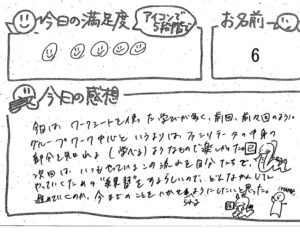 今日の満足度
アイコンで
5段階で
お名前
6
今日の感想
今日は ワークシートを使った学びが多く、前回、前々回のように
グループワーク中心と いうよりは ファシリテータの中身の
部分を 知れるよ(学べる)ようなもので楽しかった
次回は いつもやっているこの流れを自分たちで、
やっていくための"練習"をするらしいので、どんなかんじに
進めていくのか、今までのことをいかせるようにしたいと思った。